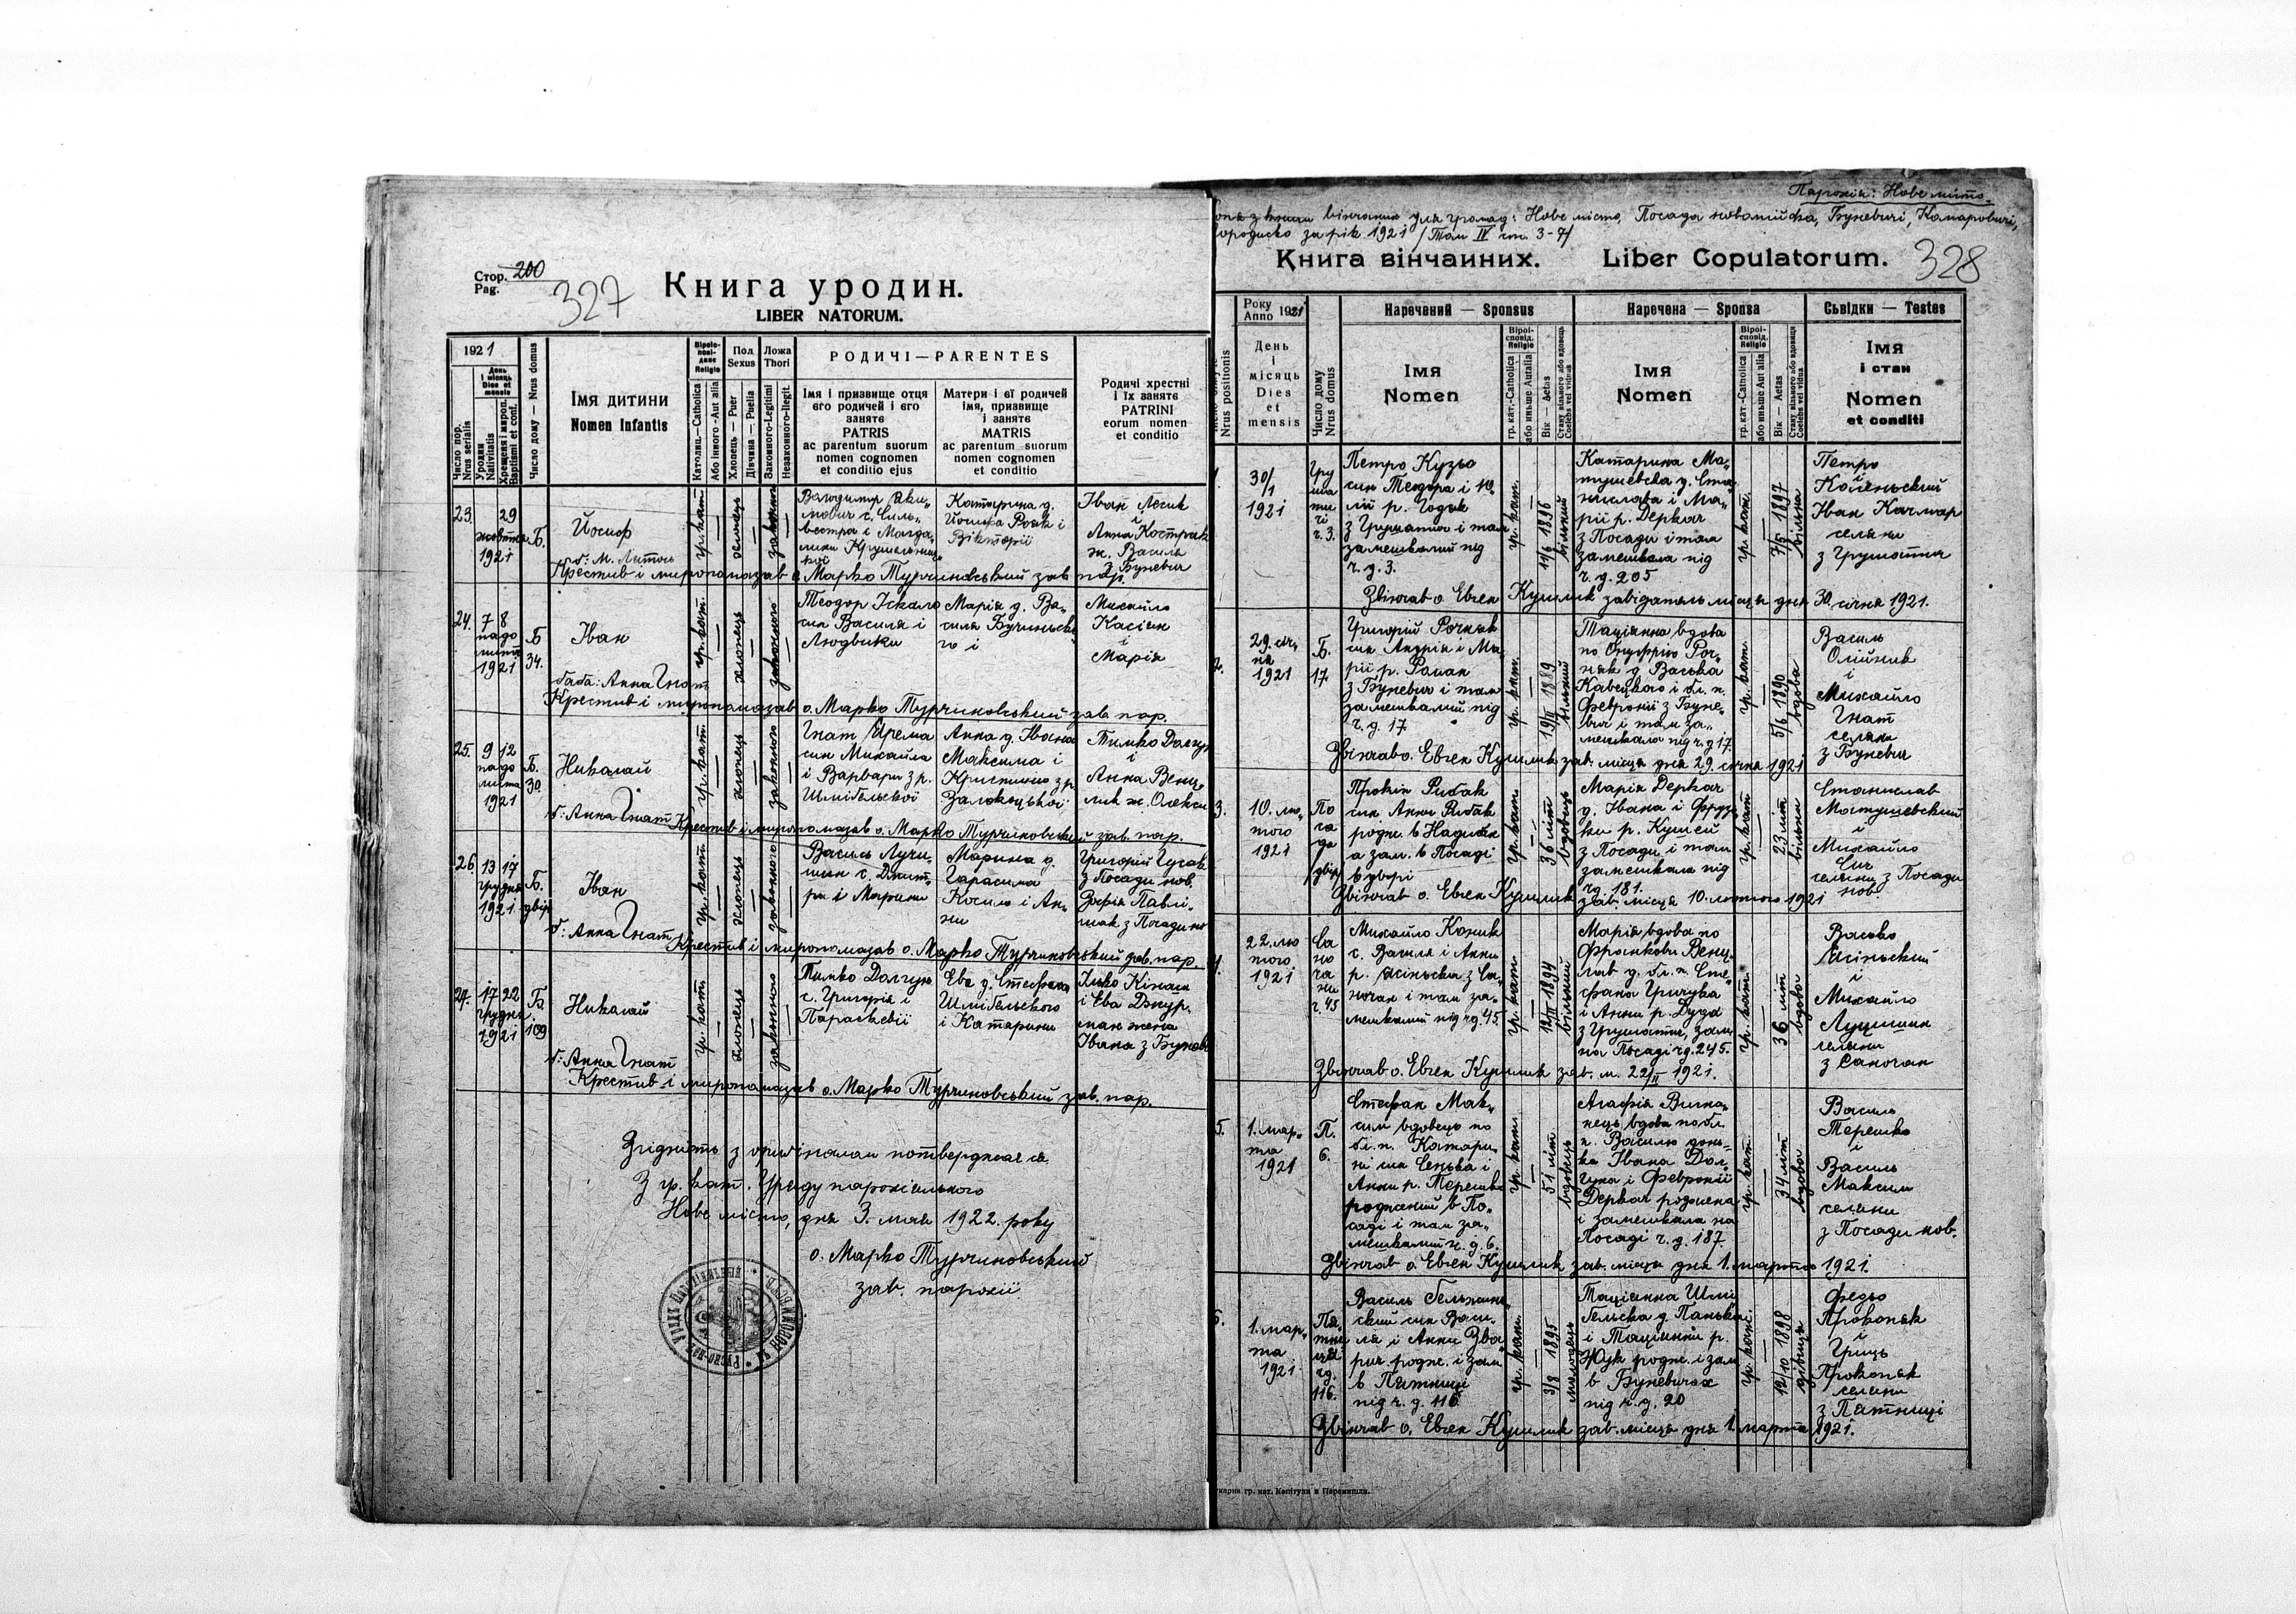 Стор. 200
Pag.
327
Книга уродин.
LIBER NATORUM.
1921
Число пор.
Nrus serialis
День
і місяць
Dies et
mensis
Уродин
Nativitatis
Хрещеня і миропом.
Baptismi et conf.
Число дому — Nrus domus
ІМЯ ДИТИНИ
Nomen Infantis
Religio
Католиц.—Catholica
Або інного - Aut alia
Пол
Sexus
Хлопець — Puer
Дівчина — Puella
Ложа
Thori
Законного-Legitimi
Незаконного-Ilegit.
РОДИЧІ — PARENTES
Імя і призвище отця
єго родичей і єго
занятє
PATRIS
ac parentum suorum
nomen cognomen
et conditio ejus
Матери і єї родичей
імя, призвище
і занятє
MATRIS
ac parentum suorum
nomen cognomen
et conditio
Родичі хрестні
і їх занятє
PATRINI
eorum nomen
et conditio
23.
29
жовтня
1921
Б.
Йосиф
гр. кат.
хлопець
законного
Володимир Яки-
мович с. Силь-
вестра і Магда-
лини Крушельниць-
кої
Катерина д.
Йосифа Розяк і
Вікторії
Іван Лесик
і
Анна Костршак
ж. Василя
з Буневич
Крестив і миропомазав о. Марко Турчиновський зав. пар.
24.
7 8
падо
листа
1921
Б
34.
Іван
гр. кат.
хлопець
законного
Теодор Іскало
син Василя і
Людвики
Марія д. Ва-
силя
Михайло
Касіян
і
Марія
баба: Анна Гнат
Крестив і миропомазав о. Марко Турчиновський зав. пар.
25.
9 12
падо
листа
1921
Б.
30.
Николай
гр. кат.
хлопець
законного
Гнат Ярема
син Михайла
і Варвари з р.
Шміґельської
Анна д. Івана
Максима і
Кристини з р.
Залокоцької
Тимко Долгун
і
Анна Венц-
лик ж. Олекси
б: Анна Гнат Крестив і миропомазав о. Марко Турчиновський зав. пар.
26.
13 17
грудня
1921
Б.
двір
Іван
гр. кат.
хлопець
законного
Василь Лучи-
шин с. Дмит-
ра і Марини
Марина д.
Гарасима
Косило і Ан-
ни
Григорій Гусак
з Посади нов.
Зофія Павлі-
шак з Посади но
б: Анна Гнат Крестив і миропомазав о. Марко Турчиновський зав. пар.
27.
17 22
грудня
1921
Б.
109
Николай
гр. кат.
хлопець
законного
Тимко Долгун
с. Григорія і
Параскевії
Ева д. Стефана
Шміґельского
і Катарини
Ілько Кінаш
і Ева Джур-
ман жена
Івана з Бунев
б: Анна Гнат
Крестив і миропомазав о. Марко Турчиновський зав. пар.
Згідність з оригіналом потверджає ся
З гр. кат. Уряду парохіяльного
Нове місто, дня 3. мая 1922. року
о. Марко Турчиновський
зав. парохії.
Парохія: Нове місто.
з книги вінчаних для громад: Нове місто, Посада новомійска, Буневичі, Комаровичі,
Городиско за рік 1921 /Том IV ст. 3-7/
Книга вінчаиних. Liber Copulatorum. 328
Nrus positionis
Року
Anno 1921
День
і
місяць
Dies
et
mensis
Число дому
Nrus domus
Наречений — Sponsus
ІМЯ
Nomen
Religio
гр. кат.-Catholica
або иньше Aut alia
Вік — Aetas
Наречена — Sponsa
ІМЯ
Nomen
Religio
гр. кат.-Catholica
або иньше Aut alia
Вік — Aetas
Сьвідки — Testes
ІМЯ
і стан
Nomen
et conditi
1.
30/1
1921
Гру
ша
ти
чі
ч. 3.
Петро Кузьо
син Теодора і Ю-
лії р. Годик
з Грушатич і там
замешкалий під
ч. д. 3.
гр. кат.
11/6 1896
вільний
Катарина Ма-
тушевска д. Ста-
нислава і Ма-
рії р. Деркач
з Посади і там
замешкала під
ч. д. 205
гр. кат.
7/5 1897
вільна
Петро
Каменьский
Іван Качмар
селяни
з Грушатич
Звінчав о. Евген Кушлик завідатель місця дня 30. січня 1921.
2.
29. січ-
ня
1921
Б.
17.
Григорій Рочняк
син Андрія і Ма-
рії р. Рапак
з Буневич і там
замешкалий під
ч. д. 17
гр. кат.
19/II 1889
вільний
Таціянна вдова
по Онуфрію Роч-
няк д. Васька
Кавецкого і бл. п.
Февронії з Буне-
вич і там за-
мешкала під ч. д 17.
гр. кат.
5/6 1890
вдова
Василь
Олійник
і
Михайло
Гнат
селяни
з Буневич
Звінчав о. Евген Кушлик зав. місця дня 29. січня 1921
3.
10. лю-
того
1921
По
са
да
двір
Прокіп Рибак
син Анни Рибак
родж. в Надибах
а зам. в Посаді
в дворі
гр. кат.
36 літ
вдовець
Марія Деркач
д. Івана і Фрузь-
ки р. Кушей
з Посади і там
замешкала під
ч д. 181.
гр. кат.
23 літ
вільна
Станислав
Матушевский
і
Михайло
Сич
селяни з Посади
нов.
Звінчав о. Евген Кушлик зав. місця 10. лютого 1921
4.
22. лю
того
1921
Са
но
ча
ни
ч. 45
Михайло Коник
с. Василя і Анни
р. Ясіньска з Са-
ночан і там за-
мешкалий під ч д. 45.
гр. кат.
12/II 1894
вільний
Марія вдова по
Франкови Венц-
лав д. бл. п. Сте-
фана Грицука
і Анни р. Дуда
з Грушатич, зам.
на Посаді ч д. 245.
гр. кат.
36 літ
вдова
Васько
Ясіньский
і
Михайло
Лущишин
селяни
з Саночан
Звінчав о. Евген Кушлик зав. м. 22/II 1921.
5.
1. мар-
та
1921
П.
6.
Стефан Мак-
сим вдовець по
бл. п. Катари-
ні син Сенька і
Анни р. Терешко
роджений в По-
саді і там за-
мешкалий ч. д. 6.
гр. кат.
51 літ
вдовець
Агафія Вигна-
нець вдова по бл.
п. Василю донь-
ка Івана Дол-
гуна і Февронії
Деркач роджена
і замешкала на
Посаді ч. д. 187
гр. кат.
34 літ
вдова
Василь
Терешко
і
Василь
Максим
селяни
з Посади нов.
Звінчав о. Евген Кушлик зав. місця дня 1. марта 1921.
6.
1. мар-
та
1921
Пя-
тни
ця
чд.
116.
Василь Гельжинь-
ский син Васи-
ля і Анни Зва
рич родж. і зам.
в Пятници
під ч. д. 116
гр. кат.
3/8 1895
молодець
Таціянна Шмі
ґельска д. Панька
і Таціянни р.
Жук родж. і зам
в Буневичах
під ч. д. 20
гр. кат.
12/10 1898
дівиця
Федьо
Прокопяк
і
Гриць
Прокопяк
селяни
з Пятниці
Звінчав о. Евген Кушлик зав. місця дня 1. марта 1921.
карня гр. кат. Капітули в Перемишли.